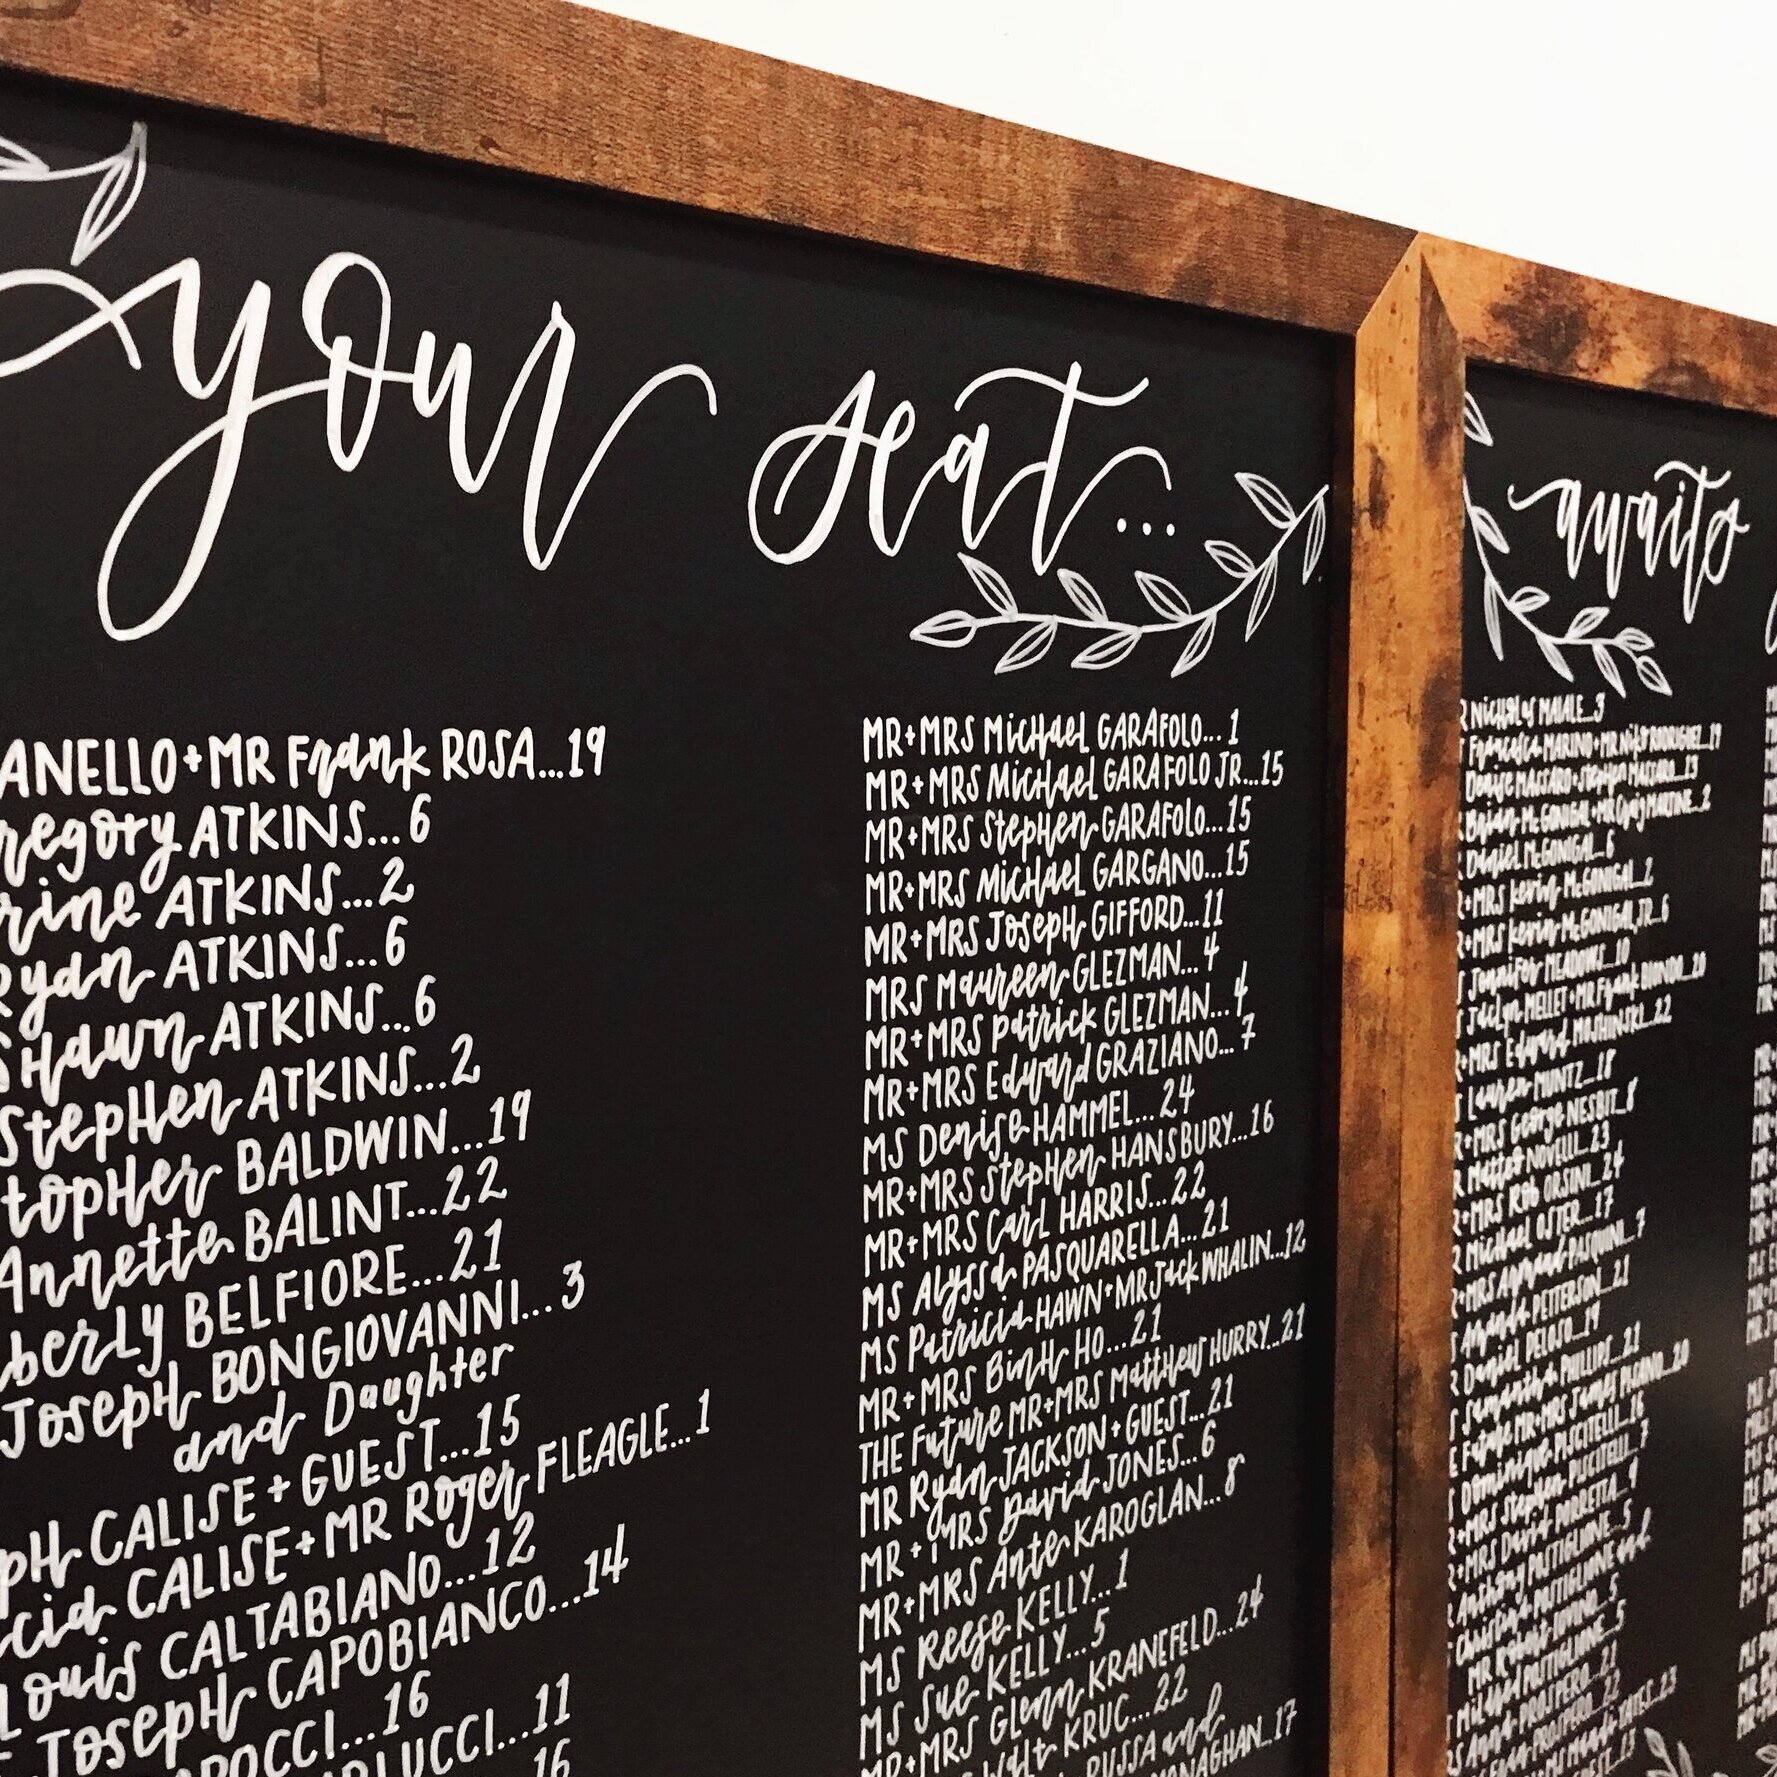 your seat...
awaits
ANELLO+MR Frank ROSA...19
regory ATKINS...6
rine ATKINS...2
Ryan ATKINS...6
SHawn ATKINS...6
StepHen ATKINS...2
topHer BALDWIN...19
Annette BALINT...22
berly BELFIORE...21
JosepH BONGIOVANNI...3
and Daughter
pH CALISE + GUEST...15
cia CALISE+MR Roger FLEAGLE...1
Louis CALTABIANO...12
JosepH CAPOBIANCO...14
POCCI...16
LUCCI...11
16
MR+MRS MicHael GARAFOLO...1
MR+MRS MicHael GARAFOLO JR...15
MR+MRS StepHen GARAFOLO...15
MR+MRS MicHael GARGANO...15
MR+MRS JosepH GIFFORD...11
MRS Maureen GLEZMAN...4
MR+MRS Patrick GLEZMAN...4
MR+MRS Edward GRAZIANO...7
MS Denise HAMMEL...24
MR+MRS StepHen HANSBURY...16
MR+MRS Carl HARRIS...22
MS Alyssa PASQUARELLA...21
MS Patricia HAWN+MR Jack WHALIN...12
MR+MRS BinH HO...21
THE Future MR+MRS MattHew HURRY...21
MR Ryan JACKSON+GUEST...21
MR+MRS David JONES...6
MR+MRS Ante KAROGLAN...8
MS Reese KELLY...1
MS Sue KELLY...5
MR+MRS Glenn KRANEFELD...24
Walt KRUC...22
RUSSA and
MONAGHAN...17
R NicHolas MAIALE...3
Francesca MARINO+MR Nick RODRIGUEZ...19
Denise MASSARO+StepHen MASSARO...13
Brian McGONIGAL+MR Craig MARTINE...2
Daniel McGONIGAL...6
R+MRS Kevin McGONIGAL...2
R+MRS Kevin McGONIGAL, JR...6
S Jennifer MEADOWS...10
S Jaclyn MELLET+MR Frank BIONDI...20
R+MRS Edward MOSHINSKI...22
S Lauren MUNTZ...18
R+MRS George NESBIT...8
R Matteo NOVELLI...23
R+MRS Rob ORSINI...24
R Michael OSTER...17
R+MRS Armand PASQUINI...7
S Amanda PETTERSON...21
R Daniel PELOSO...19
S Samantha PHILLIPS...21
E Future MR+MRS James PISANO...20
S Dominique PISCITELLI...16
R+MRS Stephen PISCITELLI...7
R+MRS David PORRETTA...9
R Anthony POSTIGLIONE...5
Christina POSTIGLIONE and
MR Robert IOVINO...5
S Mildred POSTIGLIONE...5
S Anna PROSPERO...21
PROSPERO...22